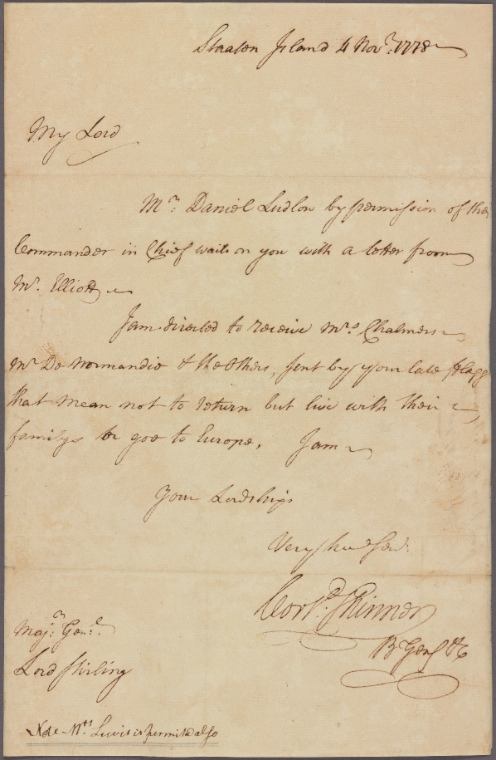 Staaton Island 4 Novr. 1778
My Lord
Mr. Daniel Ludlow by permission of the
Commander in Chief waits on you with a letter from
Mr. Elliott
I am directed to receive Mrs. Chalmers
Mr De Normandie & the others, sent by your late flagg
that mean not to return but live with their
familys or goe to Europe. I am
Your Lordships
Very hum Ser.
Cortd. Skinner
B Genl &c
Majr. Genl.
Lord Stirling
Note Mrs Lewis is permitted also